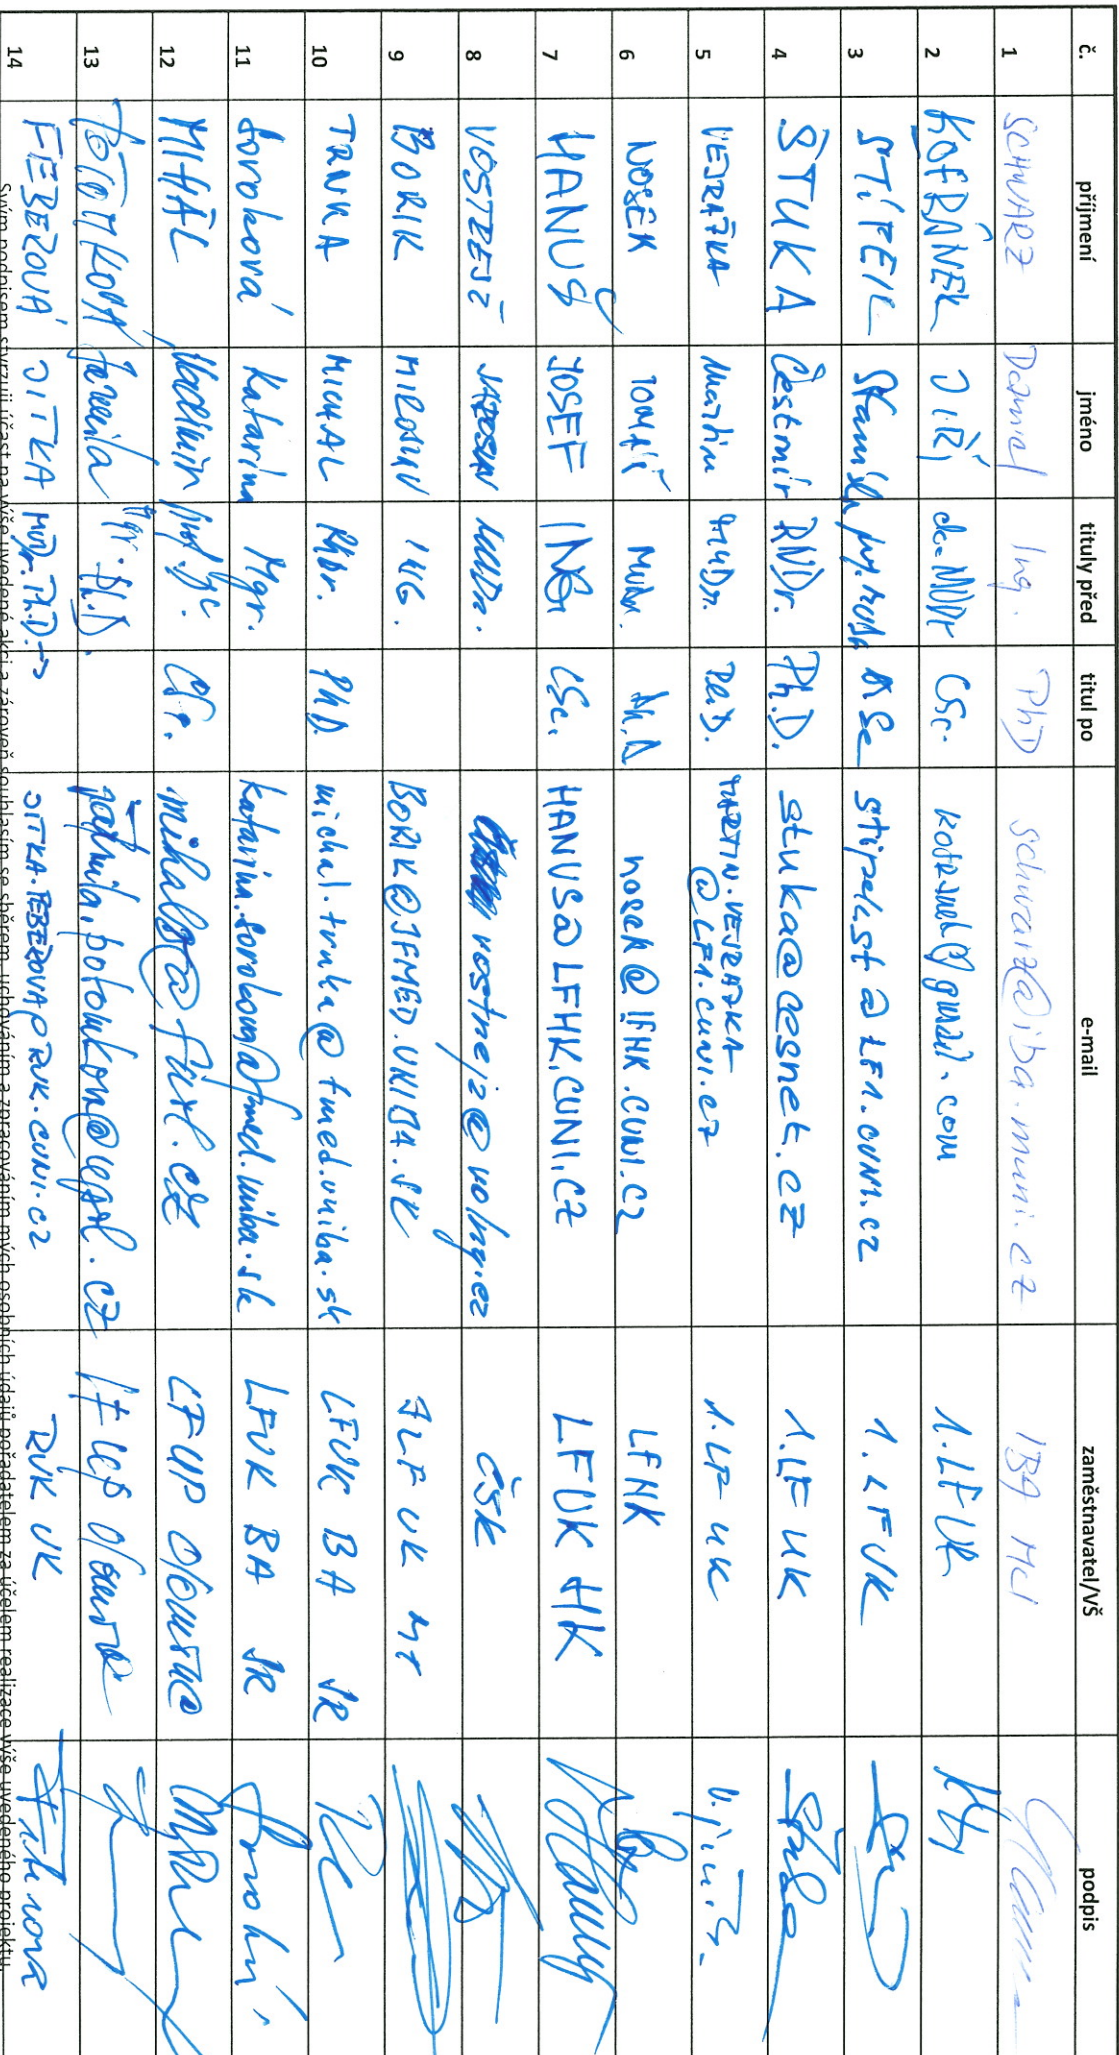 č. příjmení jméno tituly před titul po e-mail zaměstnavatel/VŠ podpis
1 SCHWARZ Daniel Ing. PhD schwarz@iba.muni.cz IBA MU
2 KOFRÁNEK JIŘÍ doc. MUDr CSc. kofranek@gmail.com 1.LF UK
3 ŠTÍPEK Stanislav DrSc stipekst@LF1.cuni.cz 1.LFUK
4 ŠTUKA Čestmír RNDr. Ph.D. stuka@cesnet.cz 1.LF UK
5 VEJRAŽKA Martin MUDr. Ph.D. MARTIN.VEJRAZKA
@LF1.CUNI.CZ 1.LF UK
6 NOSEK TOMÁŠ MUDr. Ph.D nosek@lfhk.cuni.cz LFHK
7 HANUŠ JOSEF ING CSc. HANUS@LFHK.CUNI.CZ LFUK HK
8 VOSTŘEJŽ MUDr. vostrejz@volny.cz ČSK
9 BORIK MIROSLAV ING. BORIK@JFMED.UNIBA.SK JLF UK MT
10 TRNKA MICHAL PhD. michal.trnka@fmed.uniba.sk LFUK BA SR
11 Soroková Katarína Mgr. katarina.sorokova@fmed.uniba.sk LFUK BA SR
12 MIHÁL Vladimír prof. CSc. mihalv@fnol.cz LF UP Olomouc
13 POTOMKOVÁ Jarmila Mgr. Ph.D. jarmila.potomkova@upol.cz LF UP Olomouc
14 FEBEROVÁ JITKA MUDr. Ph.D. JITKA.FEBEROVA@RUK.CUNI.CZ RUK UK
Svým podpisem stvrzuji účast na výše uvedené akci a zároveň souhlasím se sběrem, uchováním a zpracováním mých osobních údajů pořadatelem za účelem realizace výše uvedeného projektu.